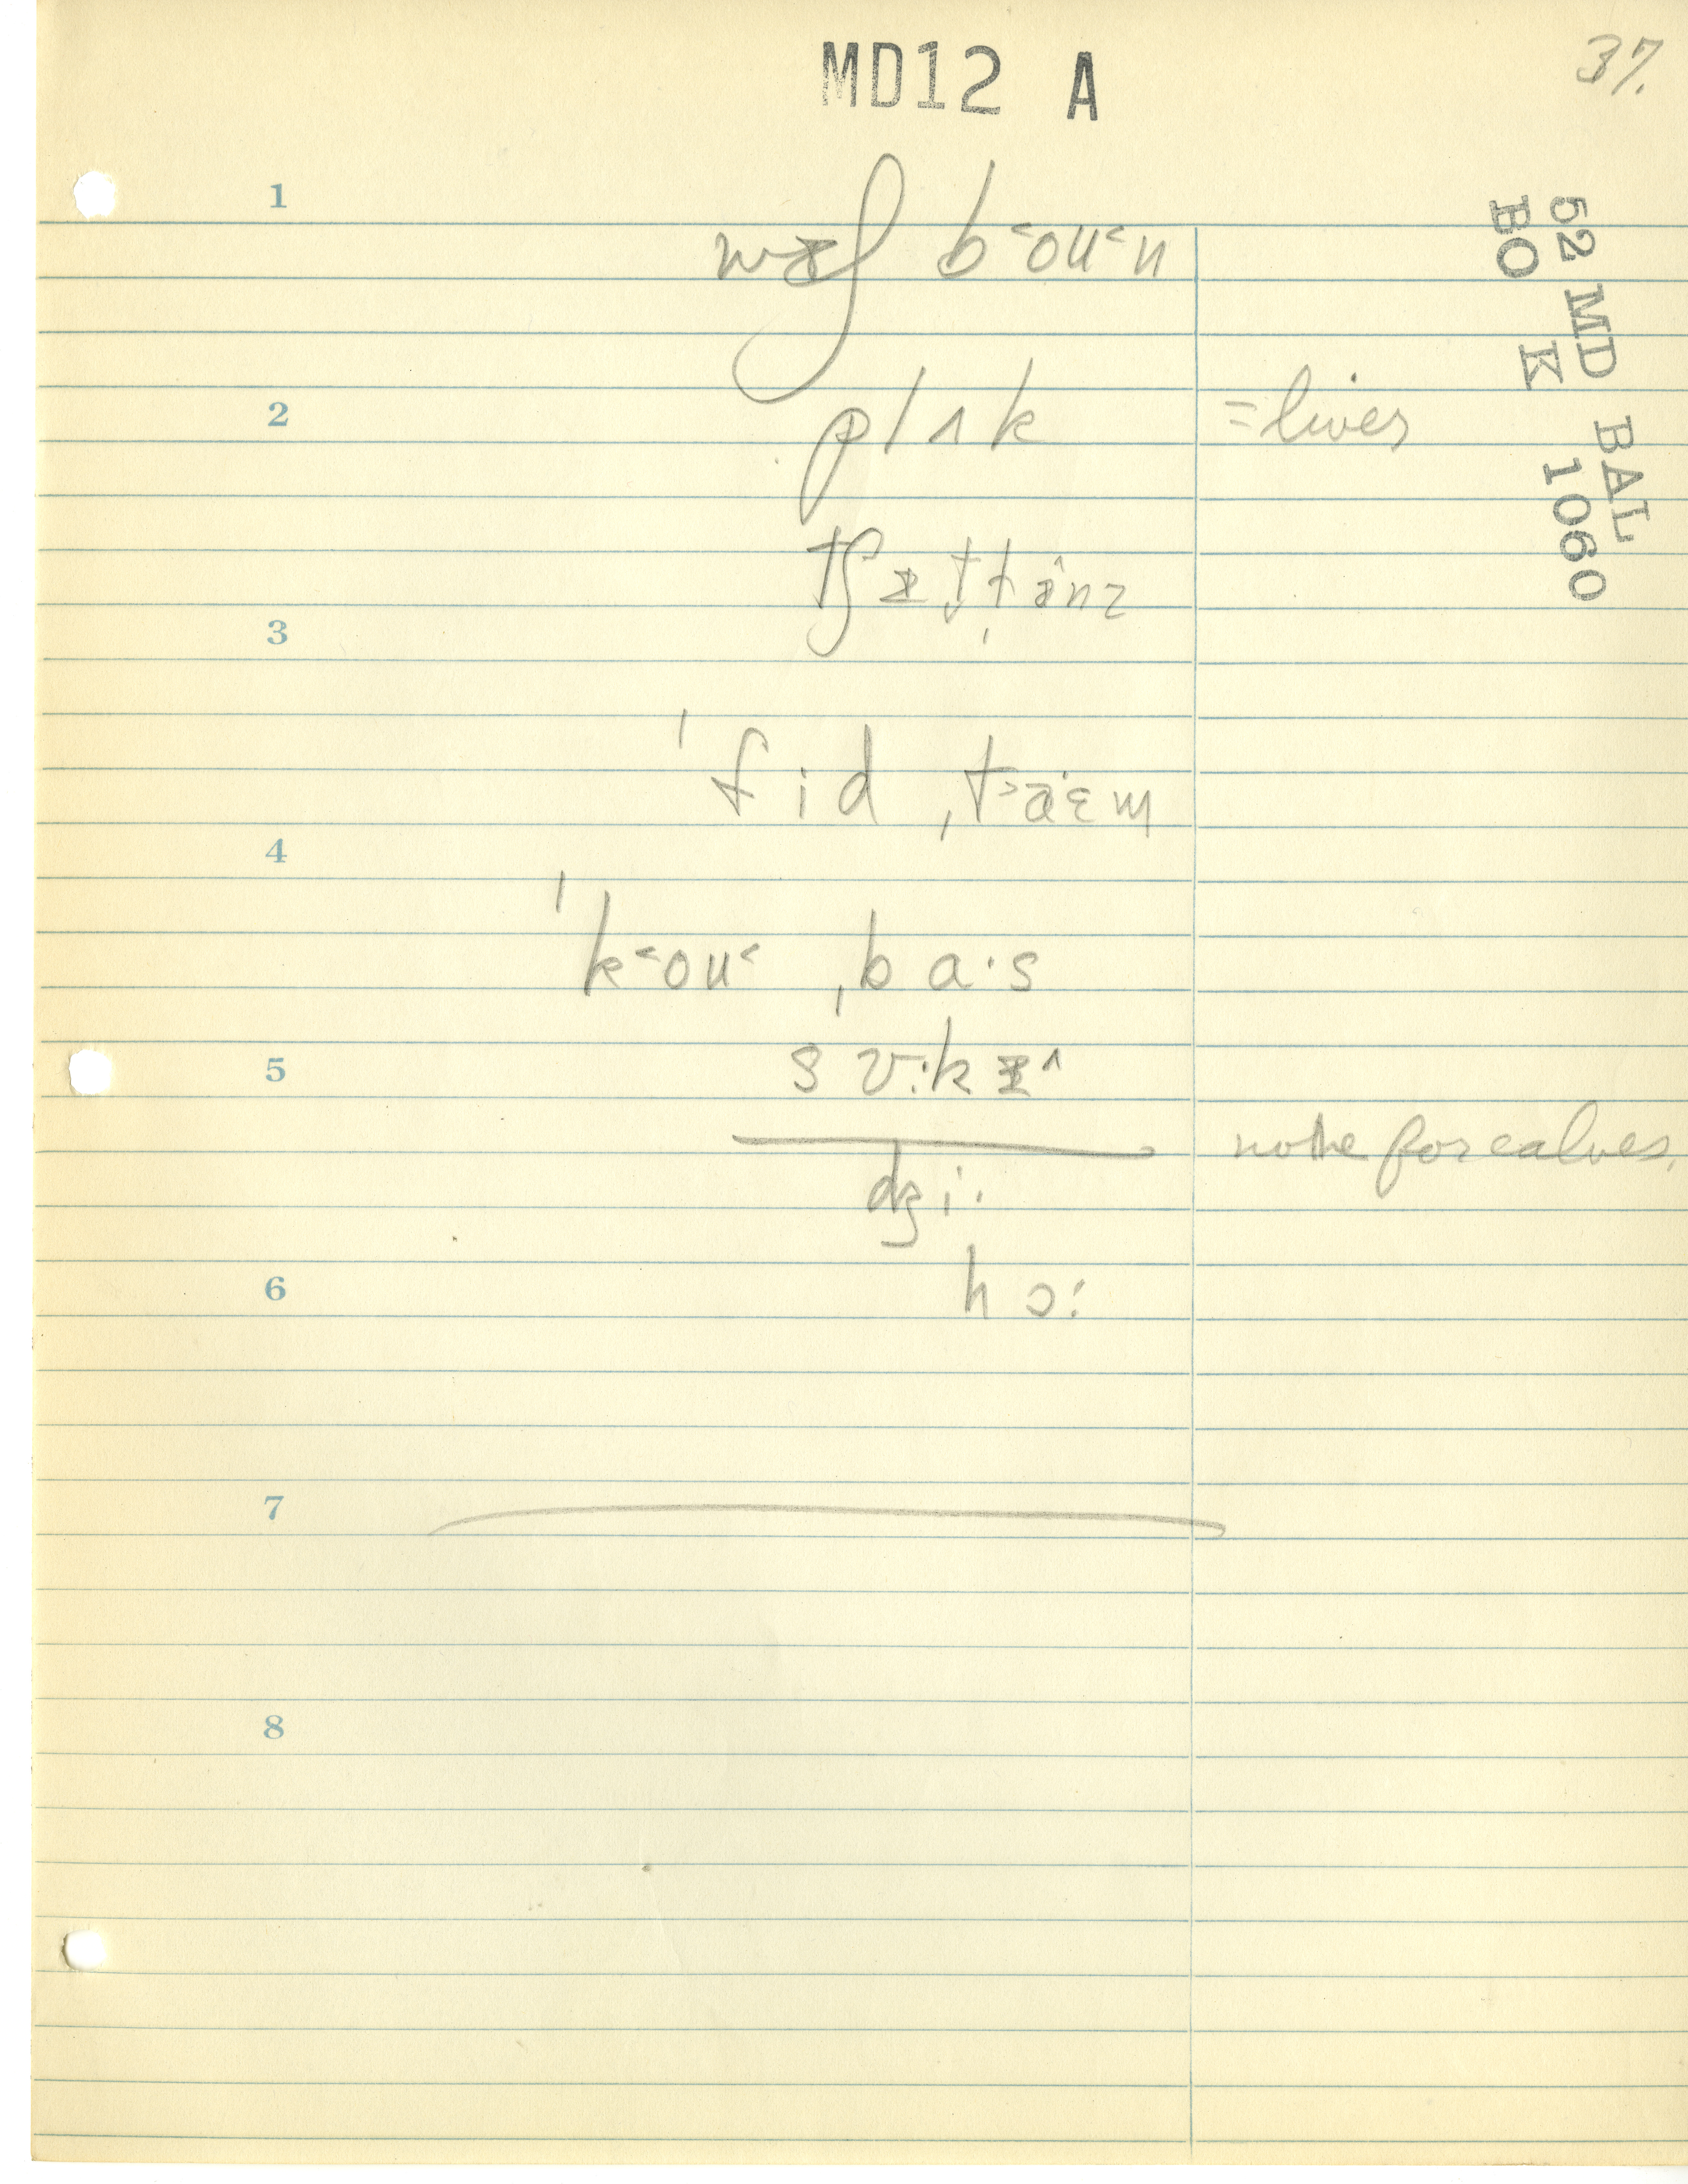 MD12 A
37.
52 MD BAL
BO K 1060
1
wɪʃ b˂oʊ˂n
2
plʌk =lives
tʃɪt̬l̩ɪnz
3
ˈfid ˌt˃aɛm
4
ˈk˂oʊ˂ ˌba·s
5
none for calves.
dʒi·
6
hɔː
7
8